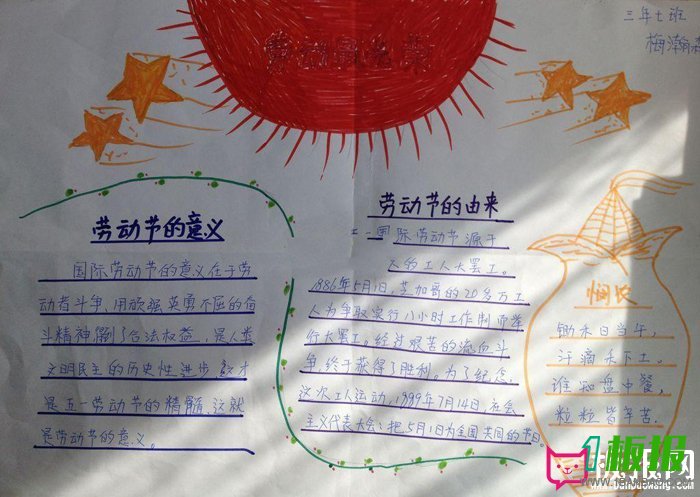 三年七班
梅瀚
劳动最光荣
劳动节的意义
国际劳动节的意义在于劳
动者斗争、用顽强英勇不屈的奋
斗精神
了合法权益,是人类
文明民主的历史性进步,这才
是五一劳动节的精髓,这就
是劳动节的意义。
劳动节的由来
五一国际劳动节源于
大的工人大罢工。
1886年5月1日,芝加哥的20多万工
人为争取实行八小时工作制而举
行大罢工,经过艰苦的流血斗
争终于获得了胜利。为了纪念
这次工人运动,1999年7月14日,社会
主义代表大会:把5月1日为全国共同的节日。
悯农
锄禾日当午,
汗滴禾下土。
谁知盘中餐,
粒粒皆辛苦.
1板报